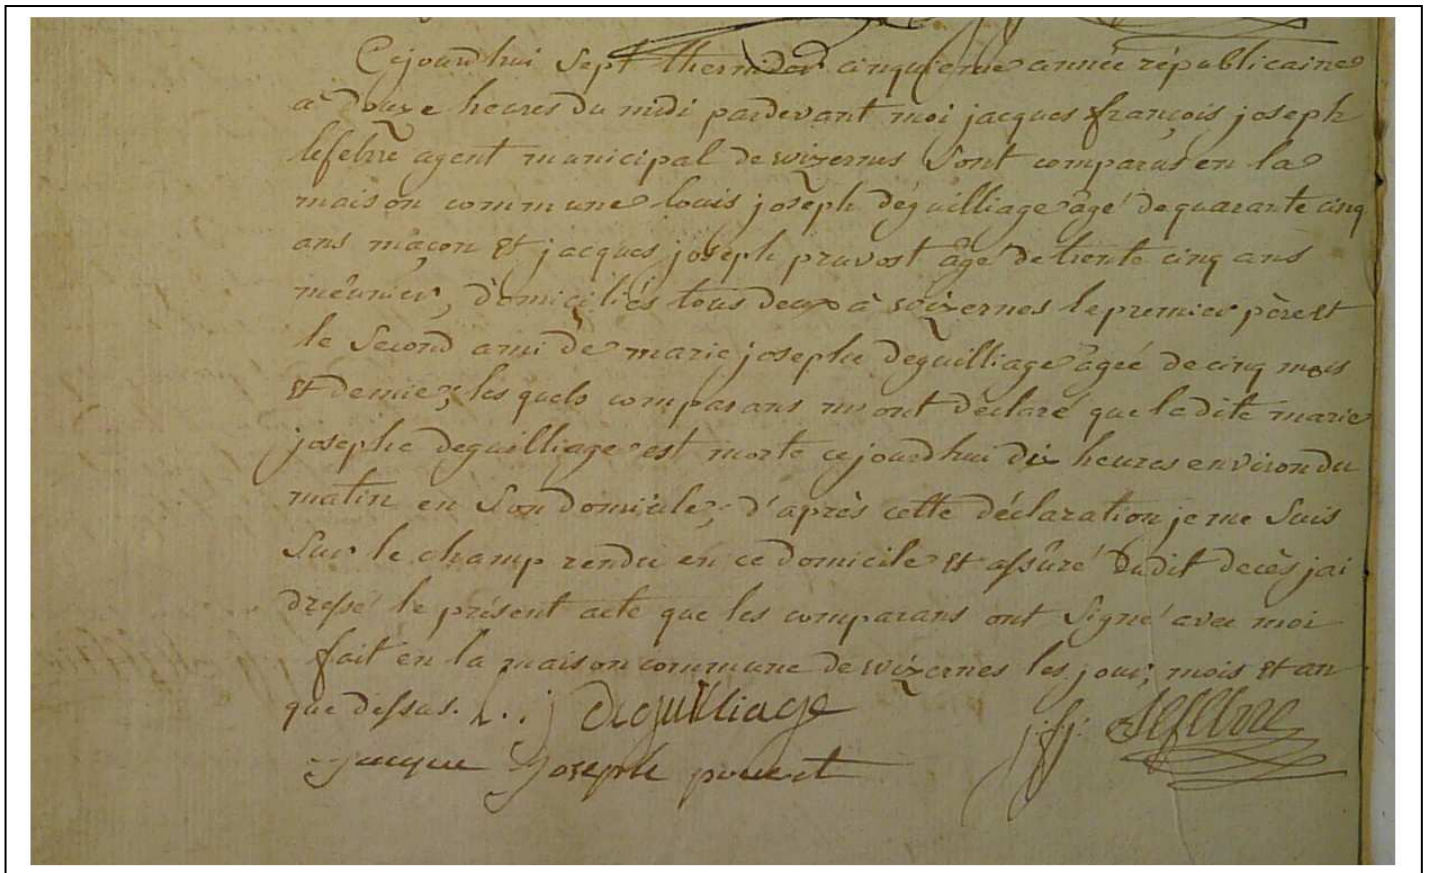 Cejourdhui Sept thermidor cinquieme année républicaine
à douze heures du midi pardevant moi jacques françois joseph
lefebvre agent municipal de wizernes Sont comparus en la
maison commune louis joseph déguilliage âgé de quarante cinq
ans maçon et jacques joseph pruvost âgé de trente cinq ans
mêunier, domiciliés tous deux à wizernes le premier père et
le Second ami de marie josephe deguilliage agée de cinq mois
et demie; les quels comparans m'ont déclaré que ladite marie
josephe deguilliage est morte cejourdhui dix heures environ du
matin en Son domicile; d'après cette déclaration je me Suis
Sur le champ rendu en ce domicile et assûré dudit decès jai
dressé le présent acte que les comparans ont Signé avec moi
fait en la maison commune de wizernes les jour, mois et an
que dessus. L. j deguilliage
j. f. j. Lefebvre
jacque Joseph